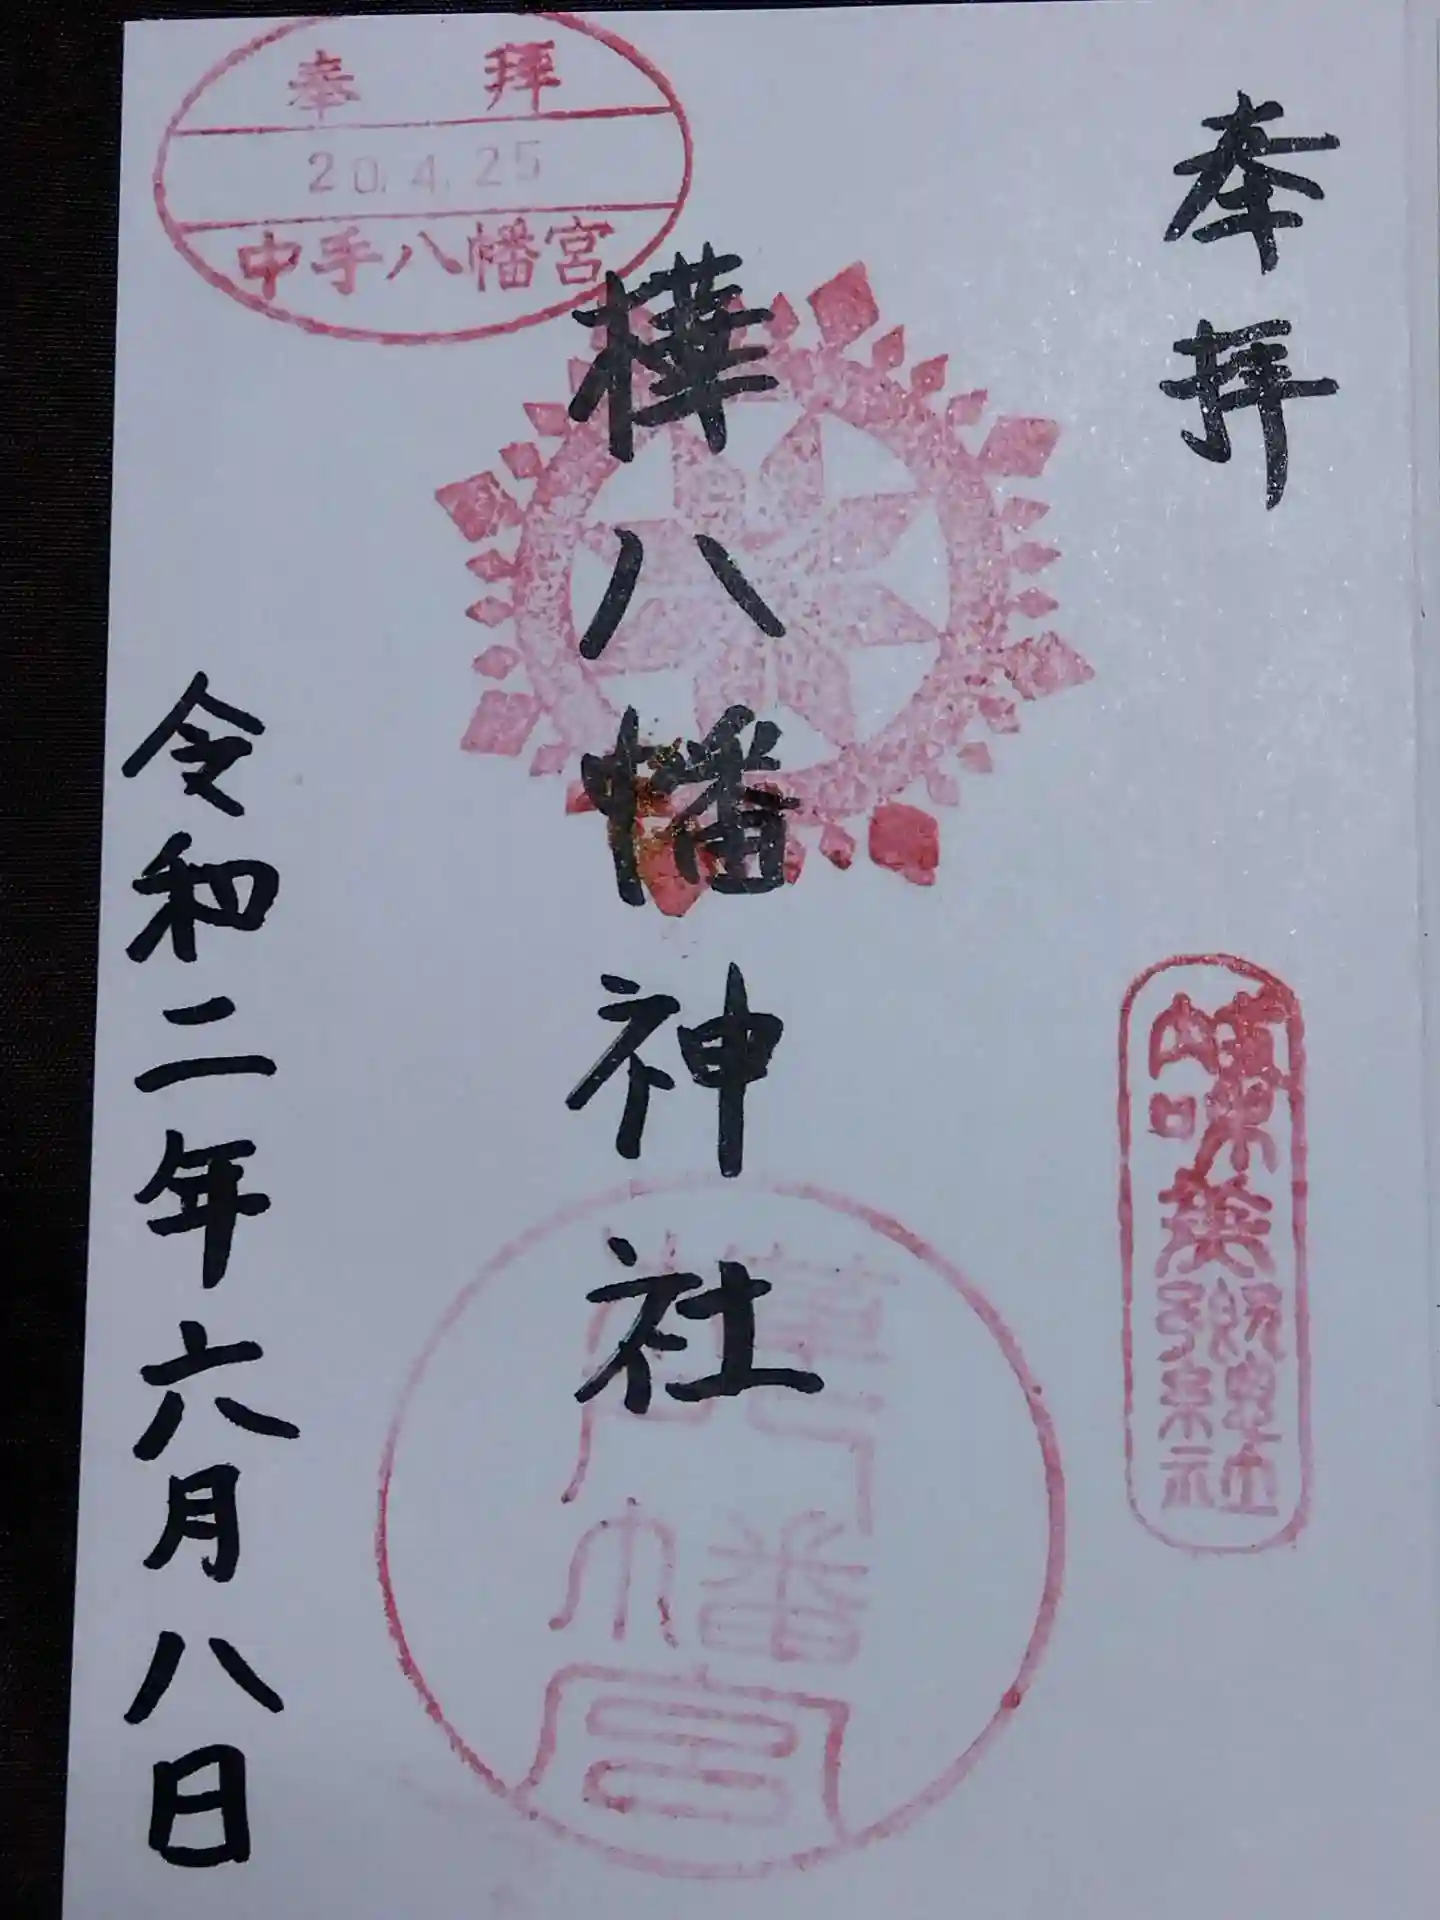 奉拝
樺八幡神社
令和二年六月八日
奉拝
20.4.25
中手八幡宮